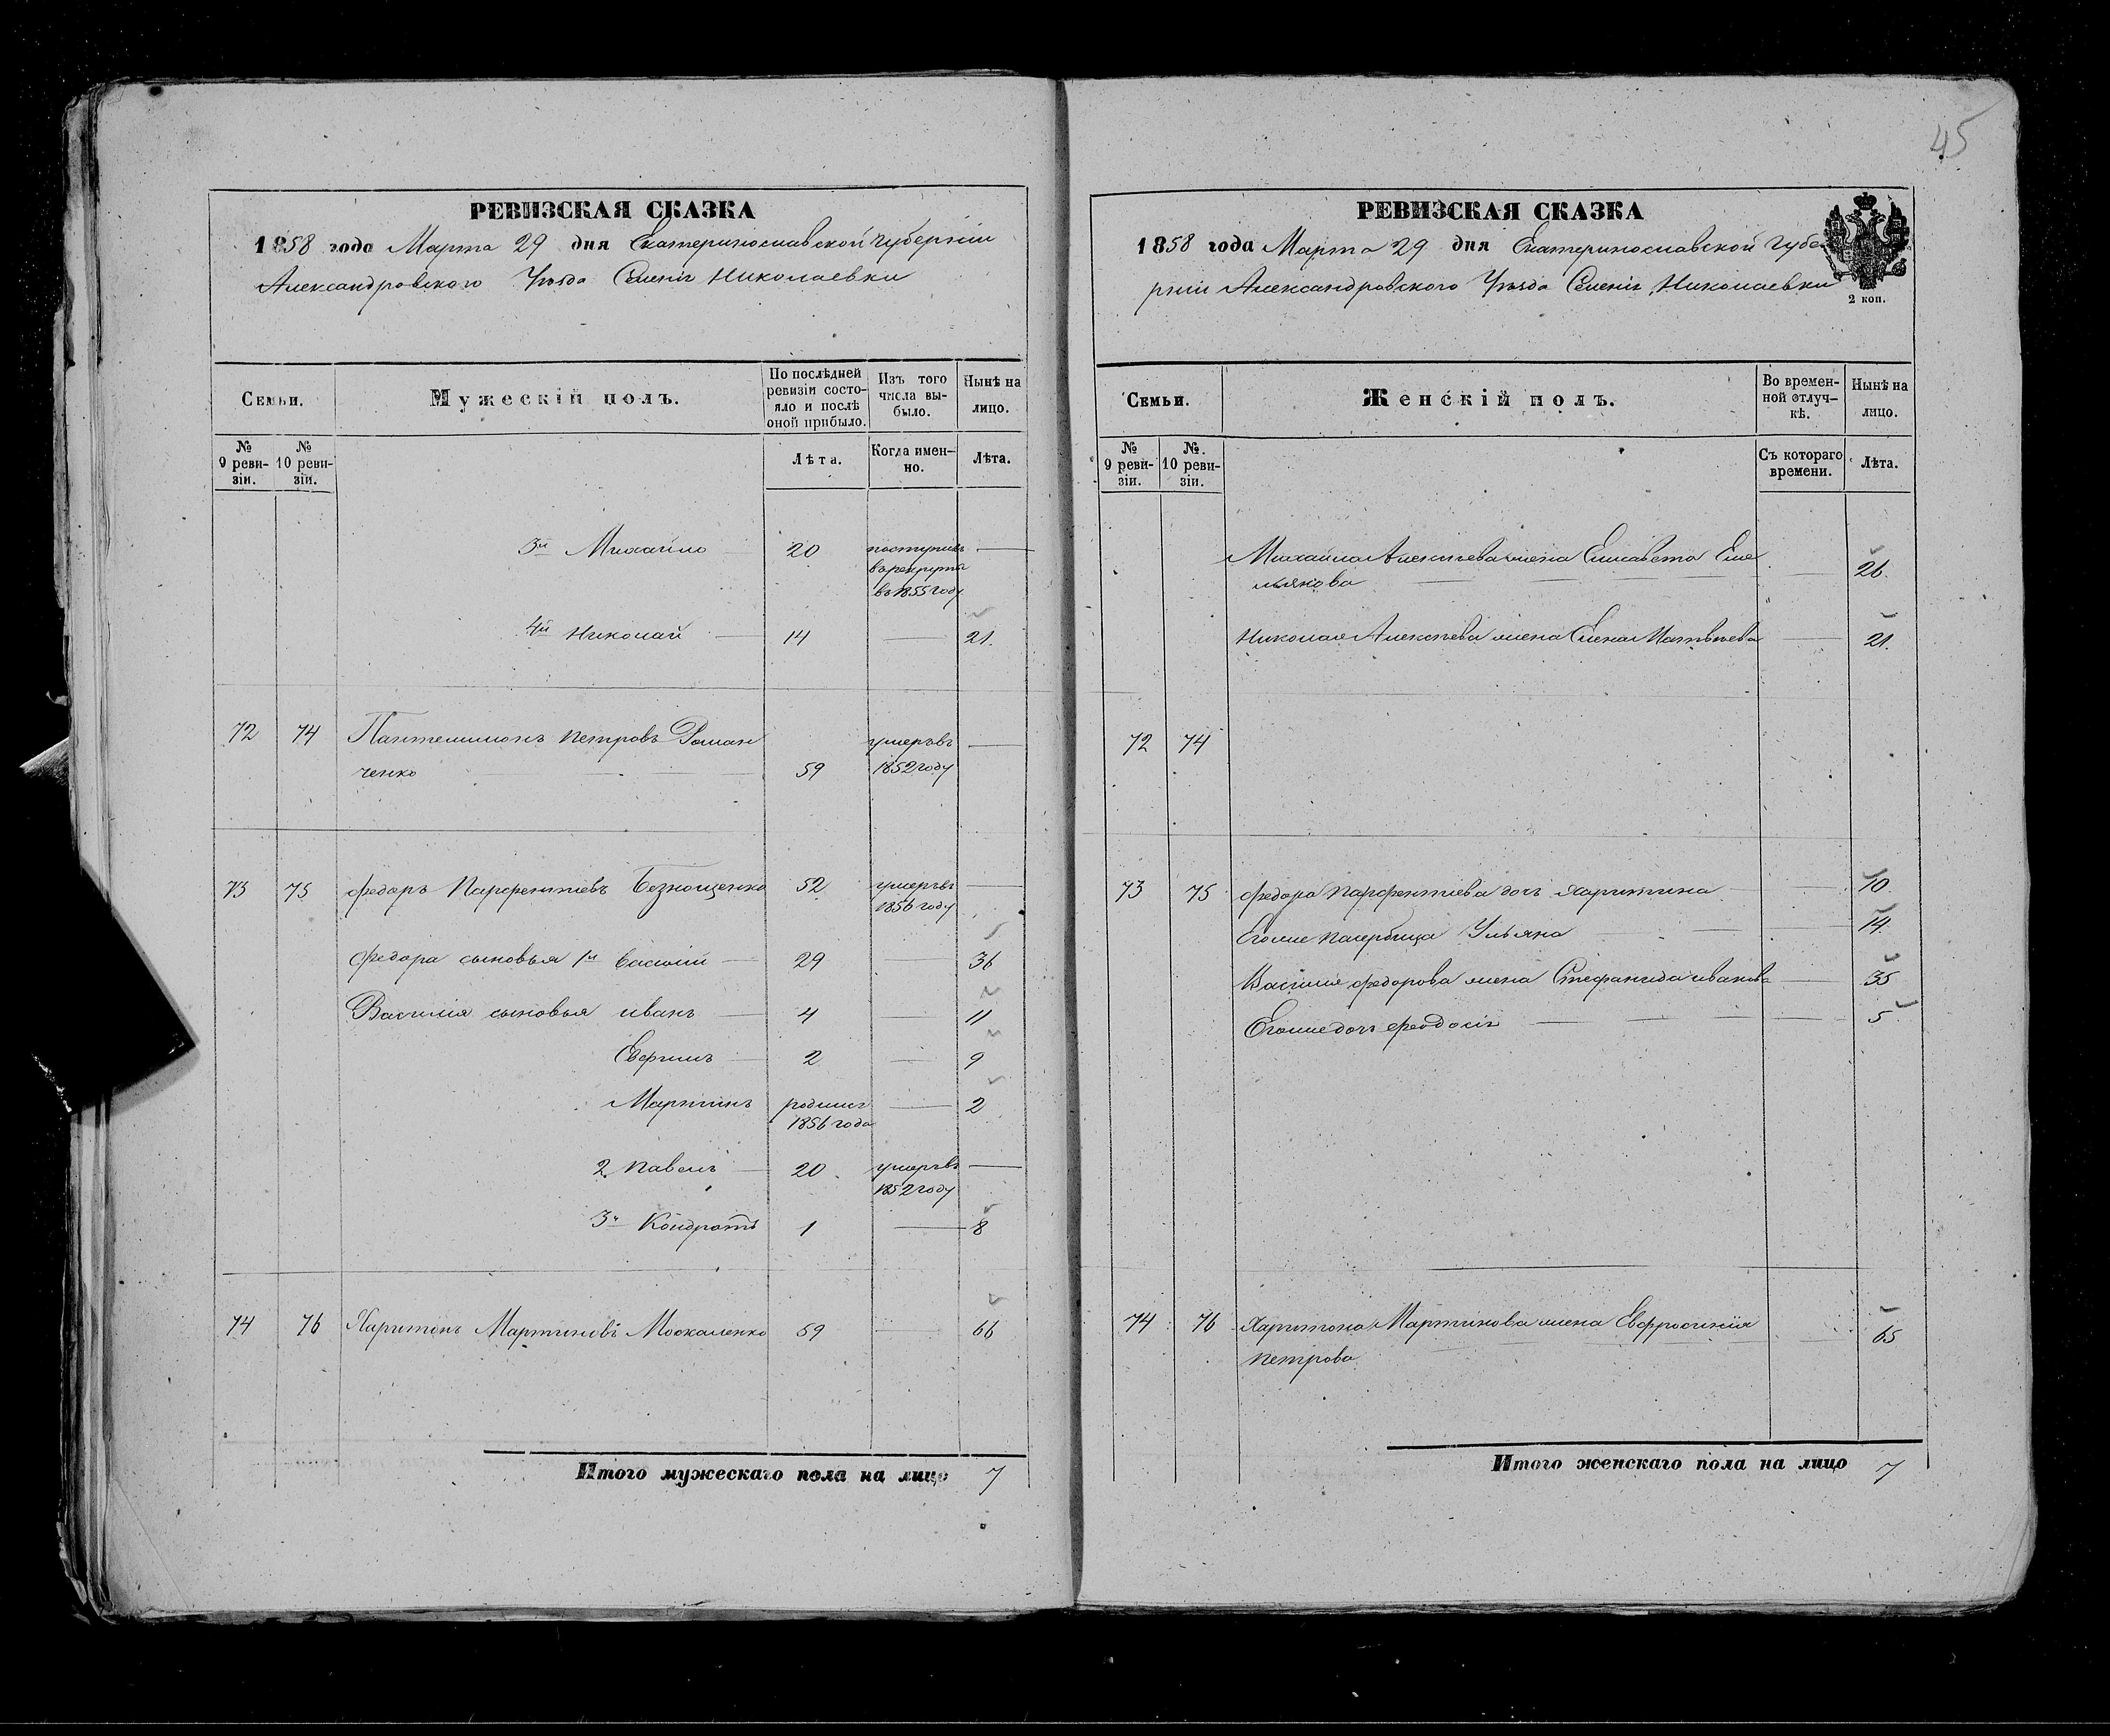 45
РЕВИЗСКАЯ СКАЗКА
1858 года Марта 29 дня Екатеринославской губерніи
Александровского Уѣзда Селенія Николаевки
Семьи.
Мужескій полъ.
По послѣдней
ревизіи состо-
яло и послѣ
оной прибыло.
Изъ того
числа вы-
было.
Нынѣ на
лицо.
№
9 реви-
зіи.
№
10 реви-
зіи.
Лѣта.
Когда имен-
но.
Лѣта.
3й Михайло 20 поступивъ
въ рекрута
въ 1855 году
4й Николай 14 21.
72 74 Пантелимонъ Петровъ Роман
ченко 59 умеръ въ
1852 году
73 75 Федоръ Парфентіевъ Безнощенко 52 умеръ въ
1856 году
Федора сыновья 1й Василій 29 36
Василія сыновья иванъ 4 11
Евфимъ 2 9
Мартинъ родился 2
1856 года
2. Павелъ 20 умеръ въ
1852 году
3й Кондратъ 1 8
74 76 Харитонъ Мартиновъ Москаленко 59 66
Итого мужескаго пола на лицо 7
РЕВИЗСКАЯ СКАЗКА
1858 года Марта 29 дня Екатеринославской Губе
рніи Александровского Уѣзда Селенія Николаевки
2 коп.
Семьи.
Женскій полъ.
Во времен-
ной отлуч-
кѣ.
Нынѣ на
лицо.
№
9 реви-
зіи.
№.
10 реви-
зіи.
Съ котораго
времени.
Лѣта.
Михайла Алексѣева жена Елисавета Еме
льянова 26.
Николая Алексѣева жена Елена Матвѣева 21.
72 74
73 75 Федора Парфентіева дочь Харитина 10.
Егоже Ульяна 14.
Василія Федорова жена Стефанида иванова 35
Егоже дочь Феодосія 5
74 76 Харитона Мартинова жена Евфросинія
Петрова 65
Итого женскаго пола на лицо 7